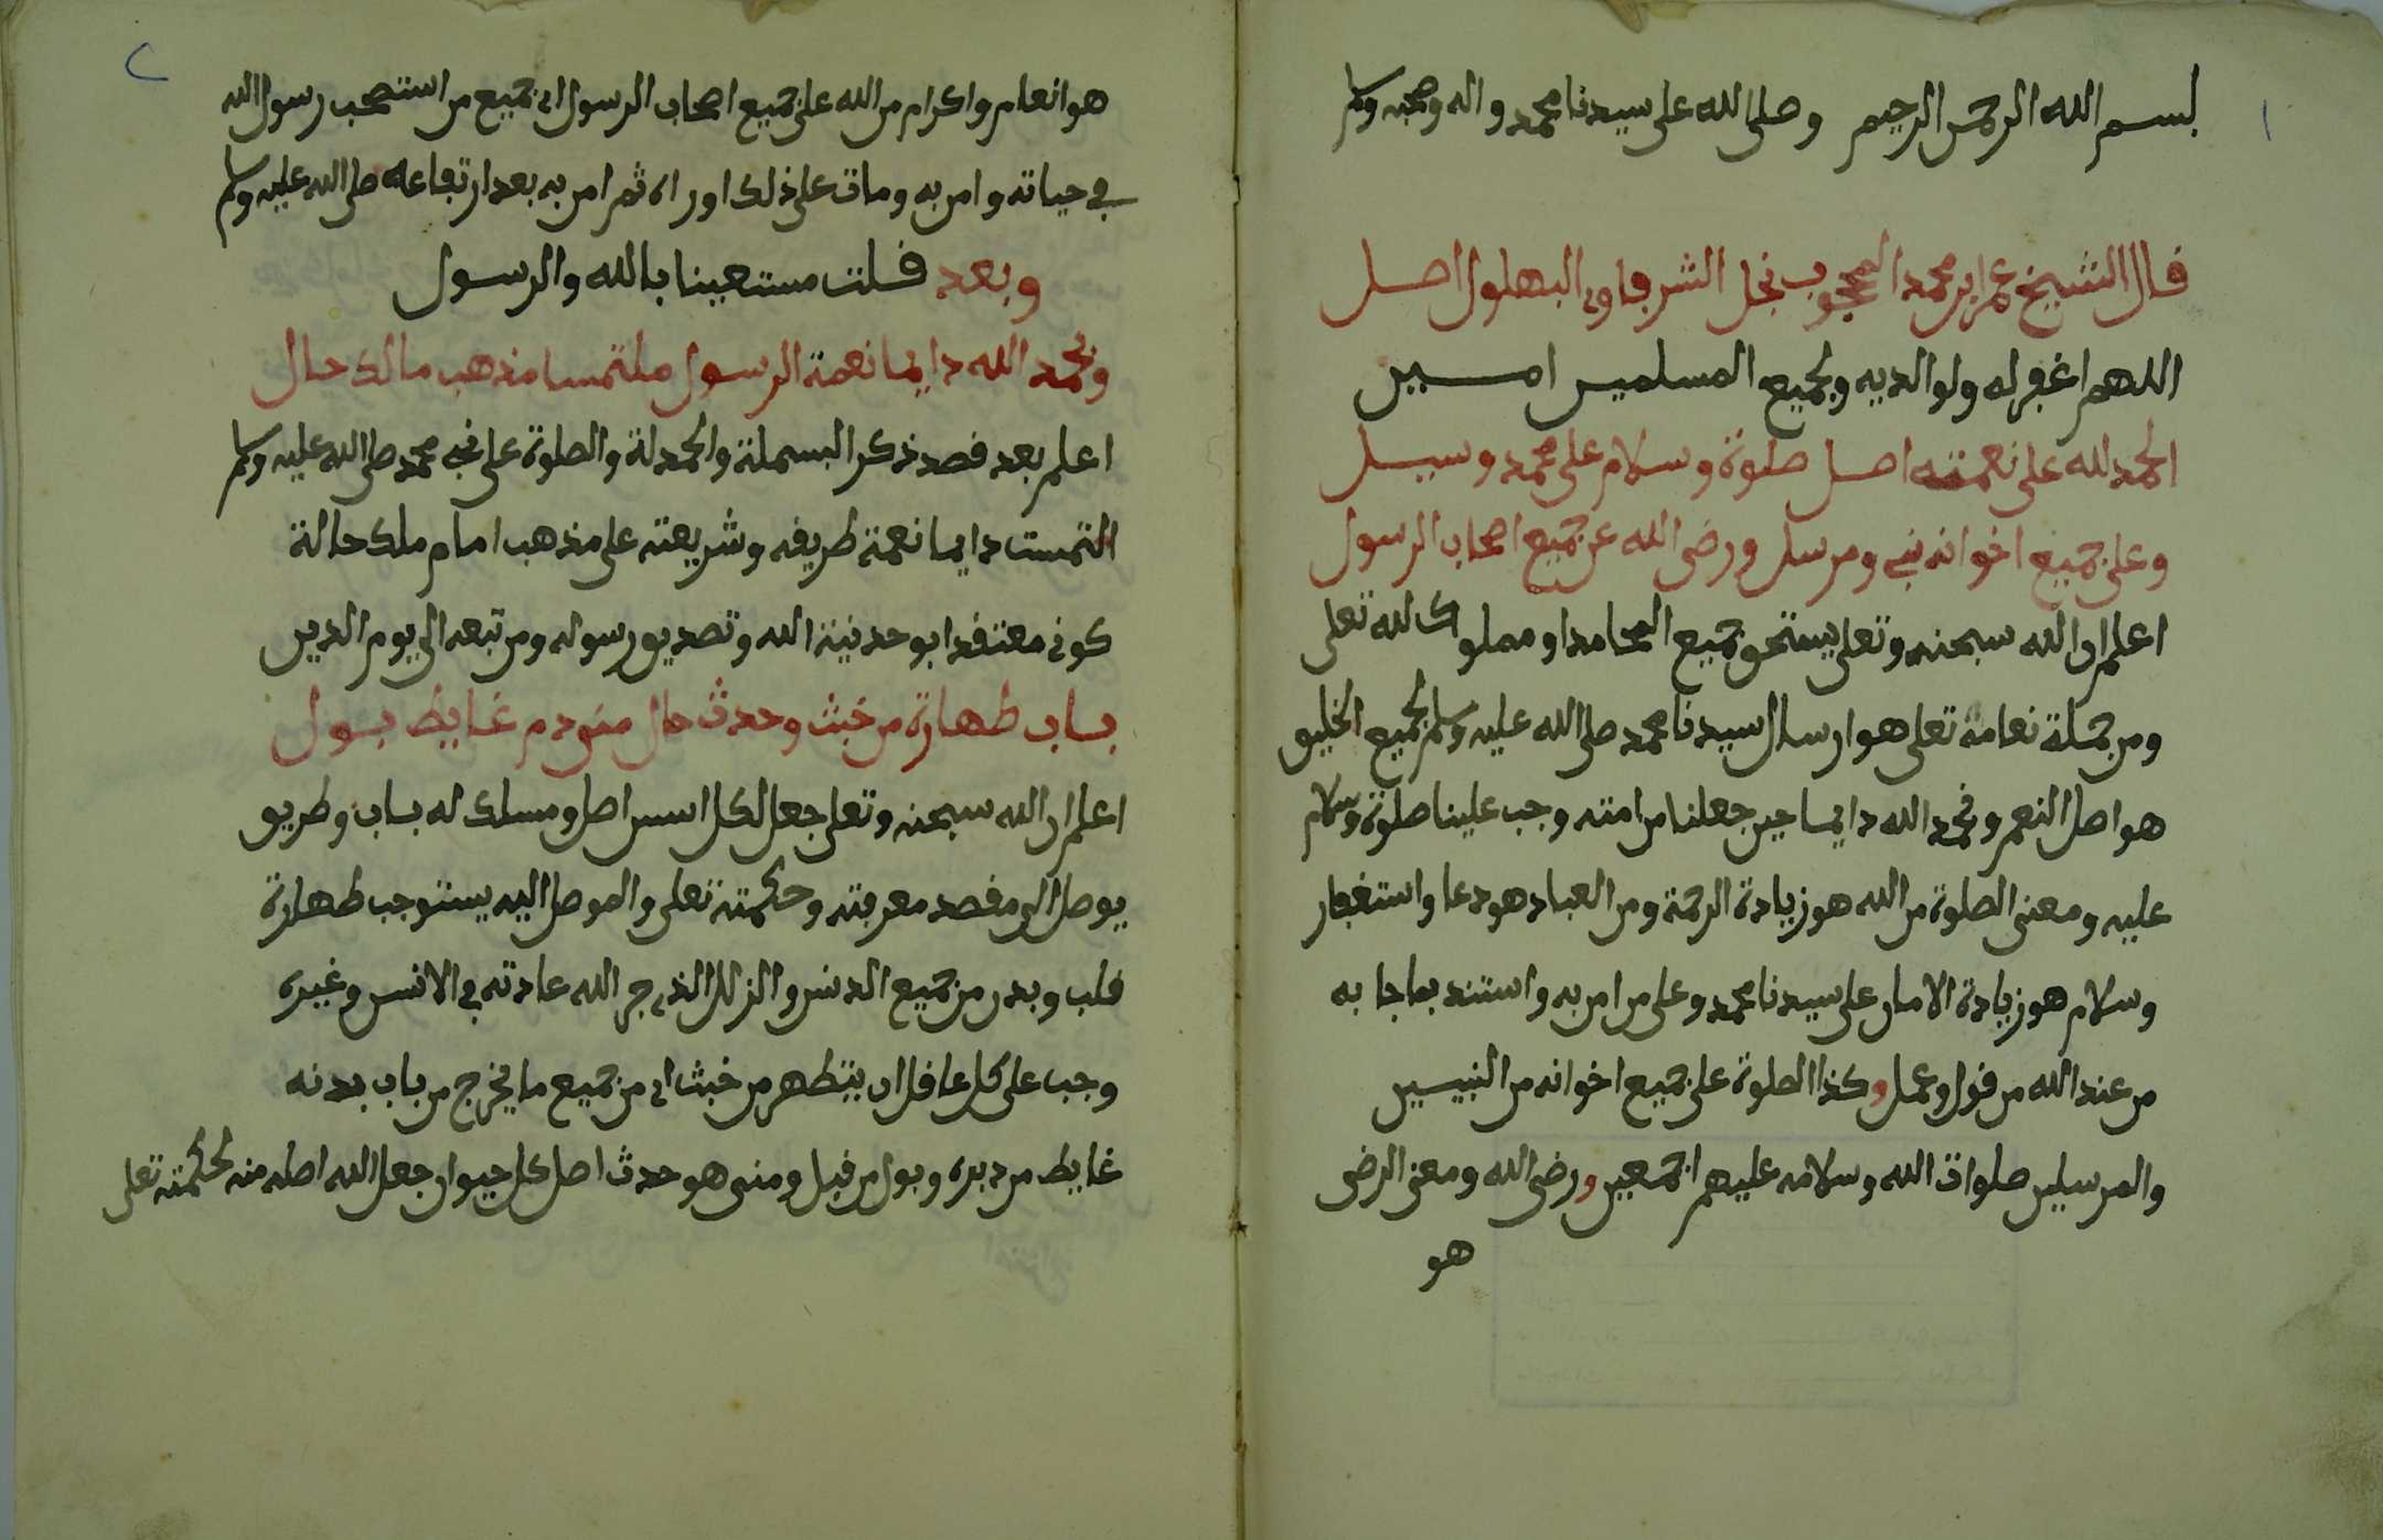 ١
بسم الله الرحمن الرحيم وصلى الله على سيدنا محمد واله وصحبه وسلم
قال الشيخ عمر ابن محمد المحجوب نجل الشرفاوى البهلول اصل
اللهم اغفر له ولوالديه ولجميع المسلمين امين
الحمد لله على نعمته اصل صلوة وسلام على محمد وسيل
وعلى جميع اخوانه نبى ومرسل ورضى الله عن جميع اصحاب الرسول
اعلم ان الله سبحنه وتعلى يستحق جميع المحامد او مملوك لله تعلى
ومن جملة نعامة تعلى هو ارسال سيدنا محمد صلى الله عليه وسلم لجميع الخليق
هو اصل النعم ونحمد الله دايما حين جعلنا من امته وجب علينا صلوة وسلام
عليه ومعنى الصلوة من الله هو زيادة الرحمة ومن العباد هو دعا واستغفار
وسلام هو زيادة الامان على سيدنا محمد وعلى من امن به واستند بما جا به
من عند الله من قول وعمل وكذا الصلوة على جميع اخوانه من النبيين
والمرسلين صلوات الله وسلامه عليهم اجمعين ورضى الله ومعنى الرضى
هو
٢
هو انعام واكرام من الله على جميع اصحاب الرسول اى جميع من استصحب رسول الله
في حياته وامن به ومات على ذلك او راه ثم امن به بعد ارتفاعه صلى الله عليه وسلم
وبعد قلت مستعينا بالله والرسول
ونحمد الله دايما نعمة الرسول ملتمسا مذهب مالك حال
اعلم بعد قصد ذكر البسملة والحمدلة والصلوة على نبى محمد صلى الله عليه وسلم
التمست دايما نعمة طريقه وشريعته على مذهب امام ملك حالة
كونى معتقدا بوحدنية الله وتصديق رسوله ومن تبعه الى يوم الدين
باب طهارة من خبث وحدث حال منى ودم غايط بول
اعلم ان الله سبحنه وتعلى جعل لكل اسس اصل ومسلك له باب وطريق
يوصل الى مقصد معرفته وحكمته تعلى والموصل اليه يستوجب طهارة
قلب وبدن من جميع الدنس والزلل الذى جر الله عادته في الانس وغيره
وجب على كل عاقل ان يتطهر من خبث اى من جميع ما يخرج من باب بدنه
غايط من دبره وبول من قبل ومنى هو حدث اصل كل حيوان جعل الله اصله منه لحكمته تعلى